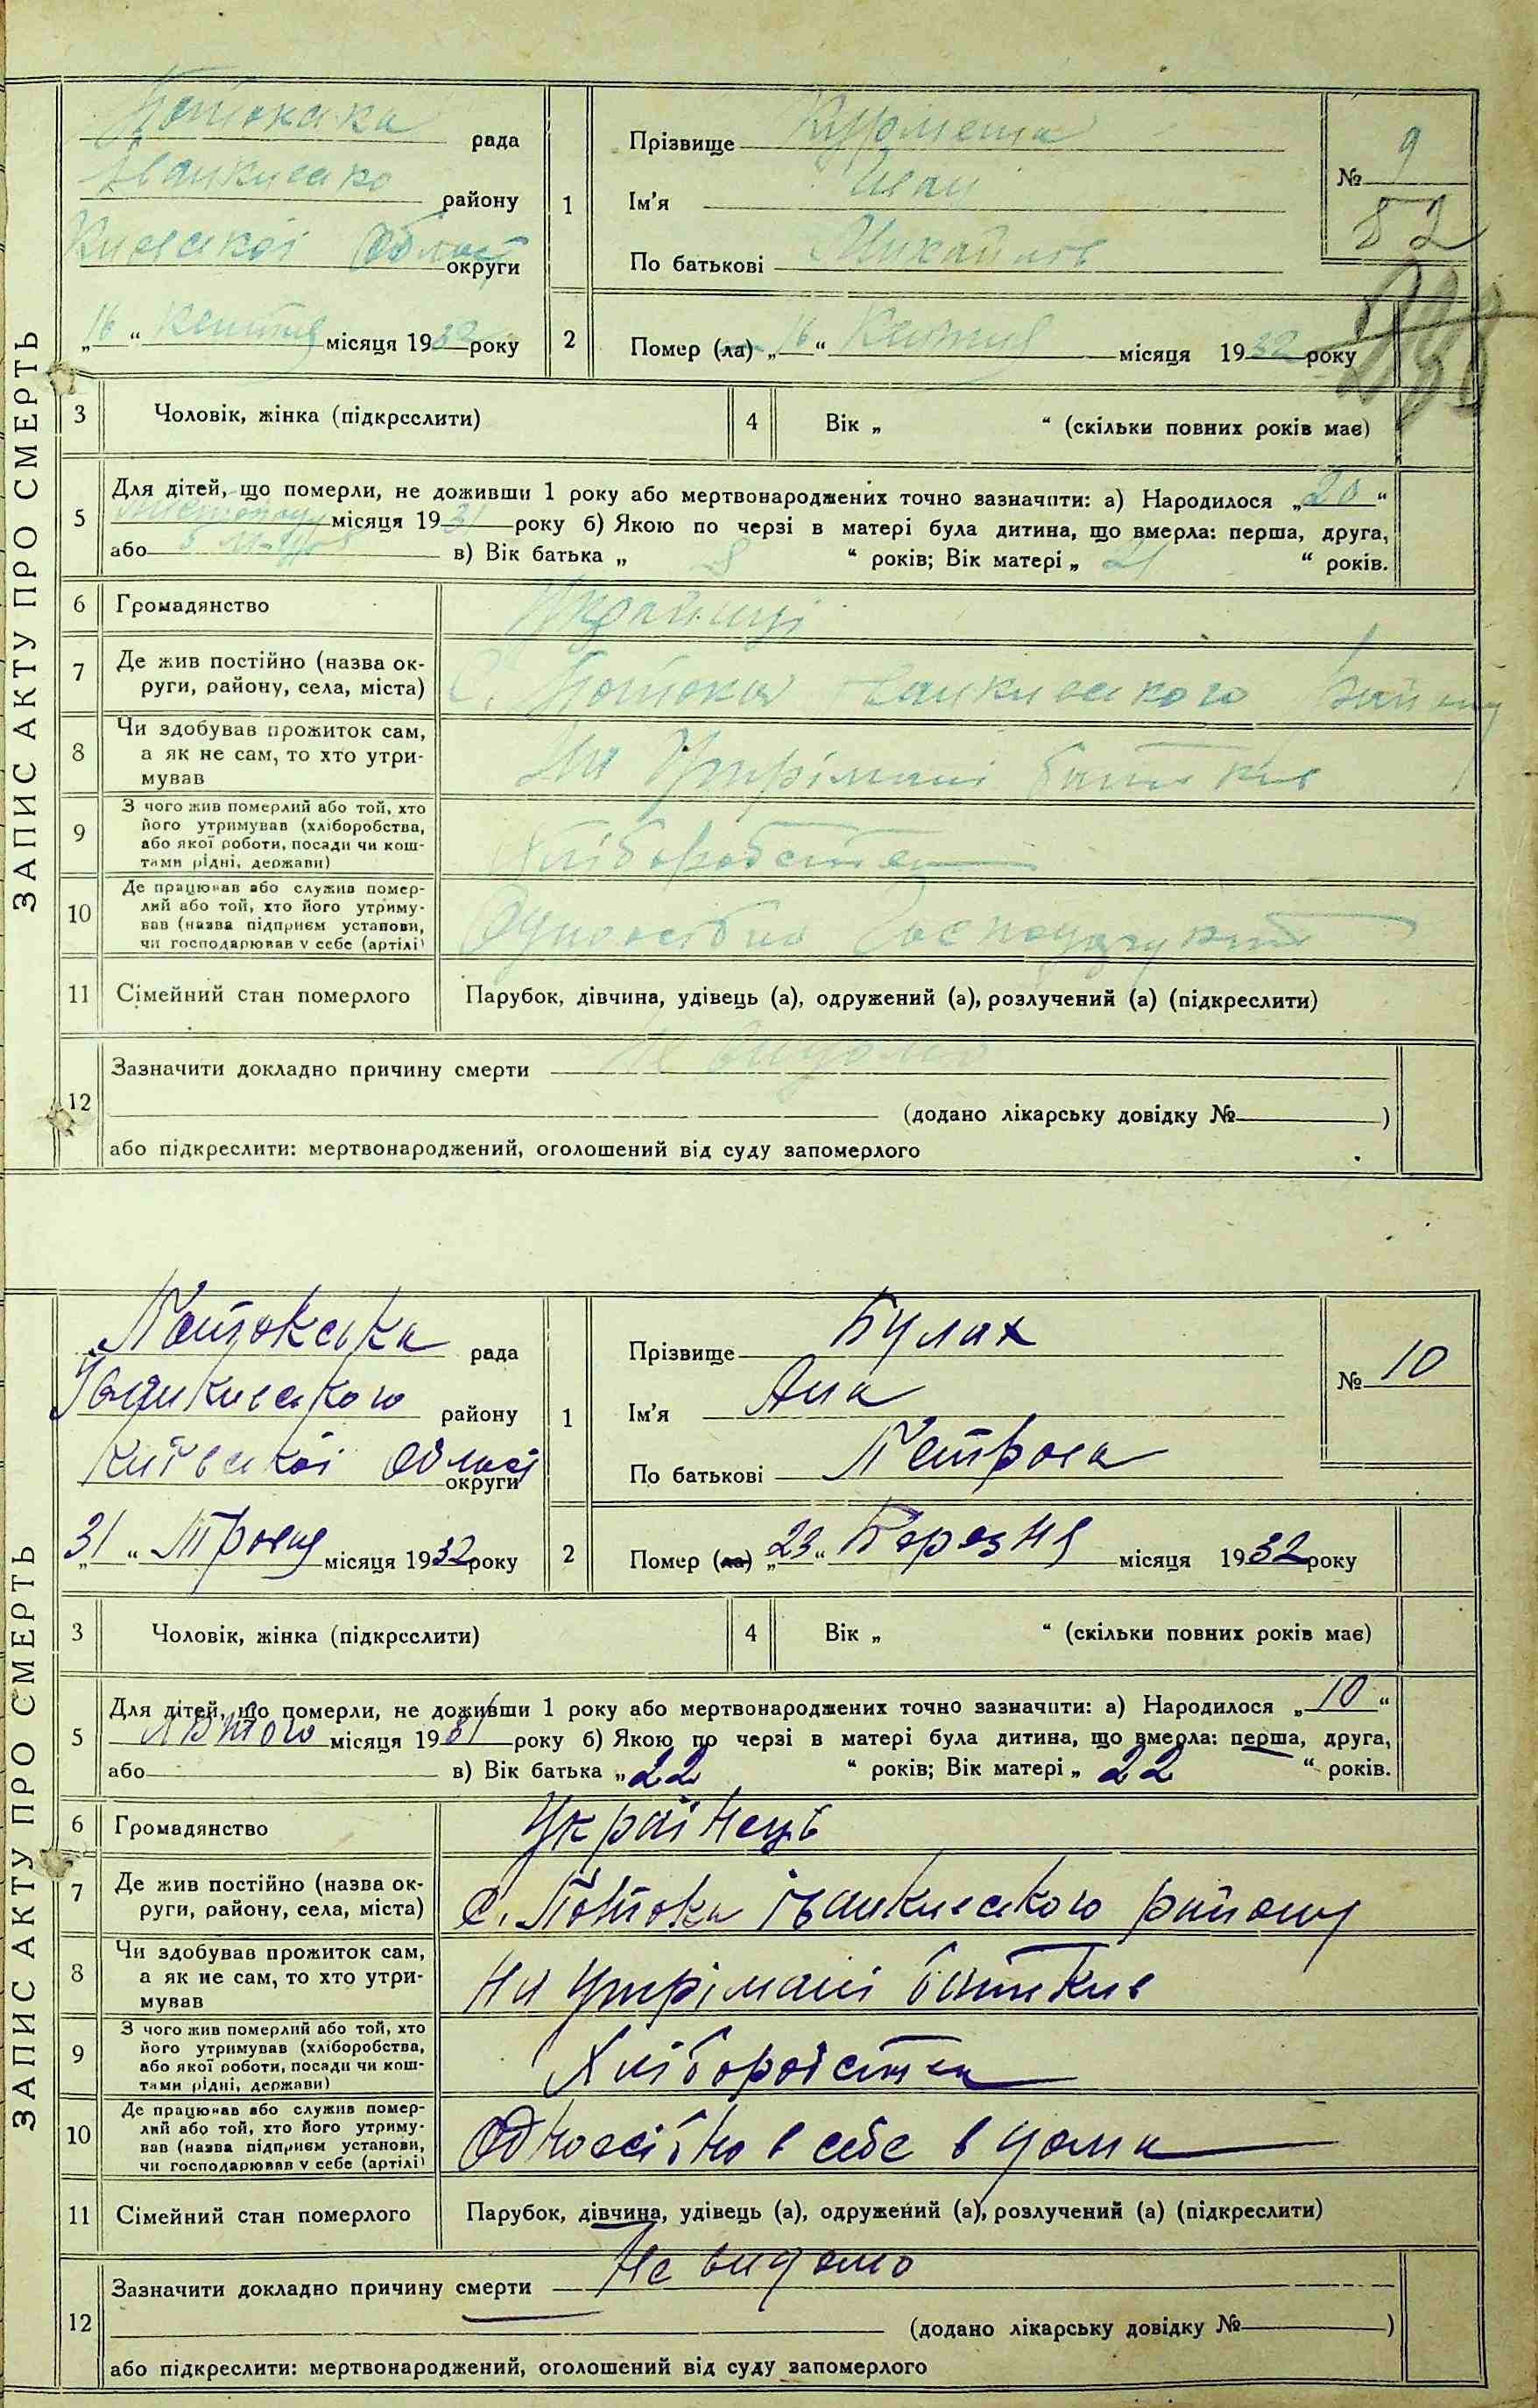 ЗАПИС АКТУ ПРО СМЕРТЬ
рада
району
Киевскої Області округи
„16“ місяця 1932 року
1
Прізвище
Ім'я Иван
По батькові Михайлов
№ 9
82
2
Помер (ла) „16“ місяця 1932 року
3
Чоловік, жінка (підкреслити)
4
Вік „ “ (скільки повних років має)
5
Для дітей, що померли, не доживши 1 року або мертвонароджених точно зазначити: а) Народилося „20“
місяця 1931 року б) Якою по черзі в матері була дитина, що вмерла: перша, друга,
або в) Вік батька „ “ років; Вік матері „21 “ років.
6
Громадянство
7
Де жив постійно (назва ок-
руги, району, села, міста)
С.
8
Чи здобував прожиток сам,
а як не сам, то хто утри-
мував
На Утрімані батькив
9
З чого жив померлий або той, хто
його утримував (хліборобства,
або якої роботи, посади чи кош-
тами рідні, держави)
Хліборобства
10
Де працював або служив помер-
лий або той, хто його утриму-
вав (назва підприєм установи,
чи господарював у себе (артілі)
Одноосібно
11
Сімейний стан померлого
Парубок, дівчина, удівець (а), одружений (а), розлучений (а) (підкреслити)
12
Зазначити докладно причину смерти Не видомо
(додано лікарську довідку № )
або підкреслити: мертвонароджений, оголошений від суду запомерлого
ЗАПИС АКТУ ПРО СМЕРТЬ
Потокська рада
Іванкивського району
Київської Області округи
„31“ Травня місяця 1932 року
1
Прізвище Булах
Ім'я Ана
По батькові Петрова
№ 10
2
Помер (ла) „23“ Березня місяця 1932 року
3
Чоловік, жінка (підкреслити)
4
Вік „ “ (скільки повних років має)
5
Для дітей, що померли, не доживши 1 року або мертвонароджених точно зазначити: а) Народилося „10“
Лютого місяця 1931 року б) Якою по черзі в матері була дитина, що вмерла: перша, друга,
або в) Вік батька „22 “ років; Вік матері „ 22 “ років.
6
Громадянство
Українець
7
Де жив постійно (назва ок-
руги, району, села, міста)
С. Потоки Іванкивського району
8
Чи здобував прожиток сам,
а як не сам, то хто утри-
мував
На утрімані батькив
9
З чого жив померлий або той, хто
його утримував (хліборобства,
або якої роботи, посади чи кош-
тами рідні, держави)
Хліборобства
10
Де працював або служив помер-
лий або той, хто його утриму-
вав (назва підприєм установи,
чи господарював у себе (артілі)
Одноосібно в себе в дома
11
Сімейний стан померлого
Парубок, дівчина, удівець (а), одружений (а), розлучений (а) (підкреслити)
12
Зазначити докладно причину смерти Не видомо
(додано лікарську довідку № )
або підкреслити: мертвонароджений, оголошений від суду запомерлого